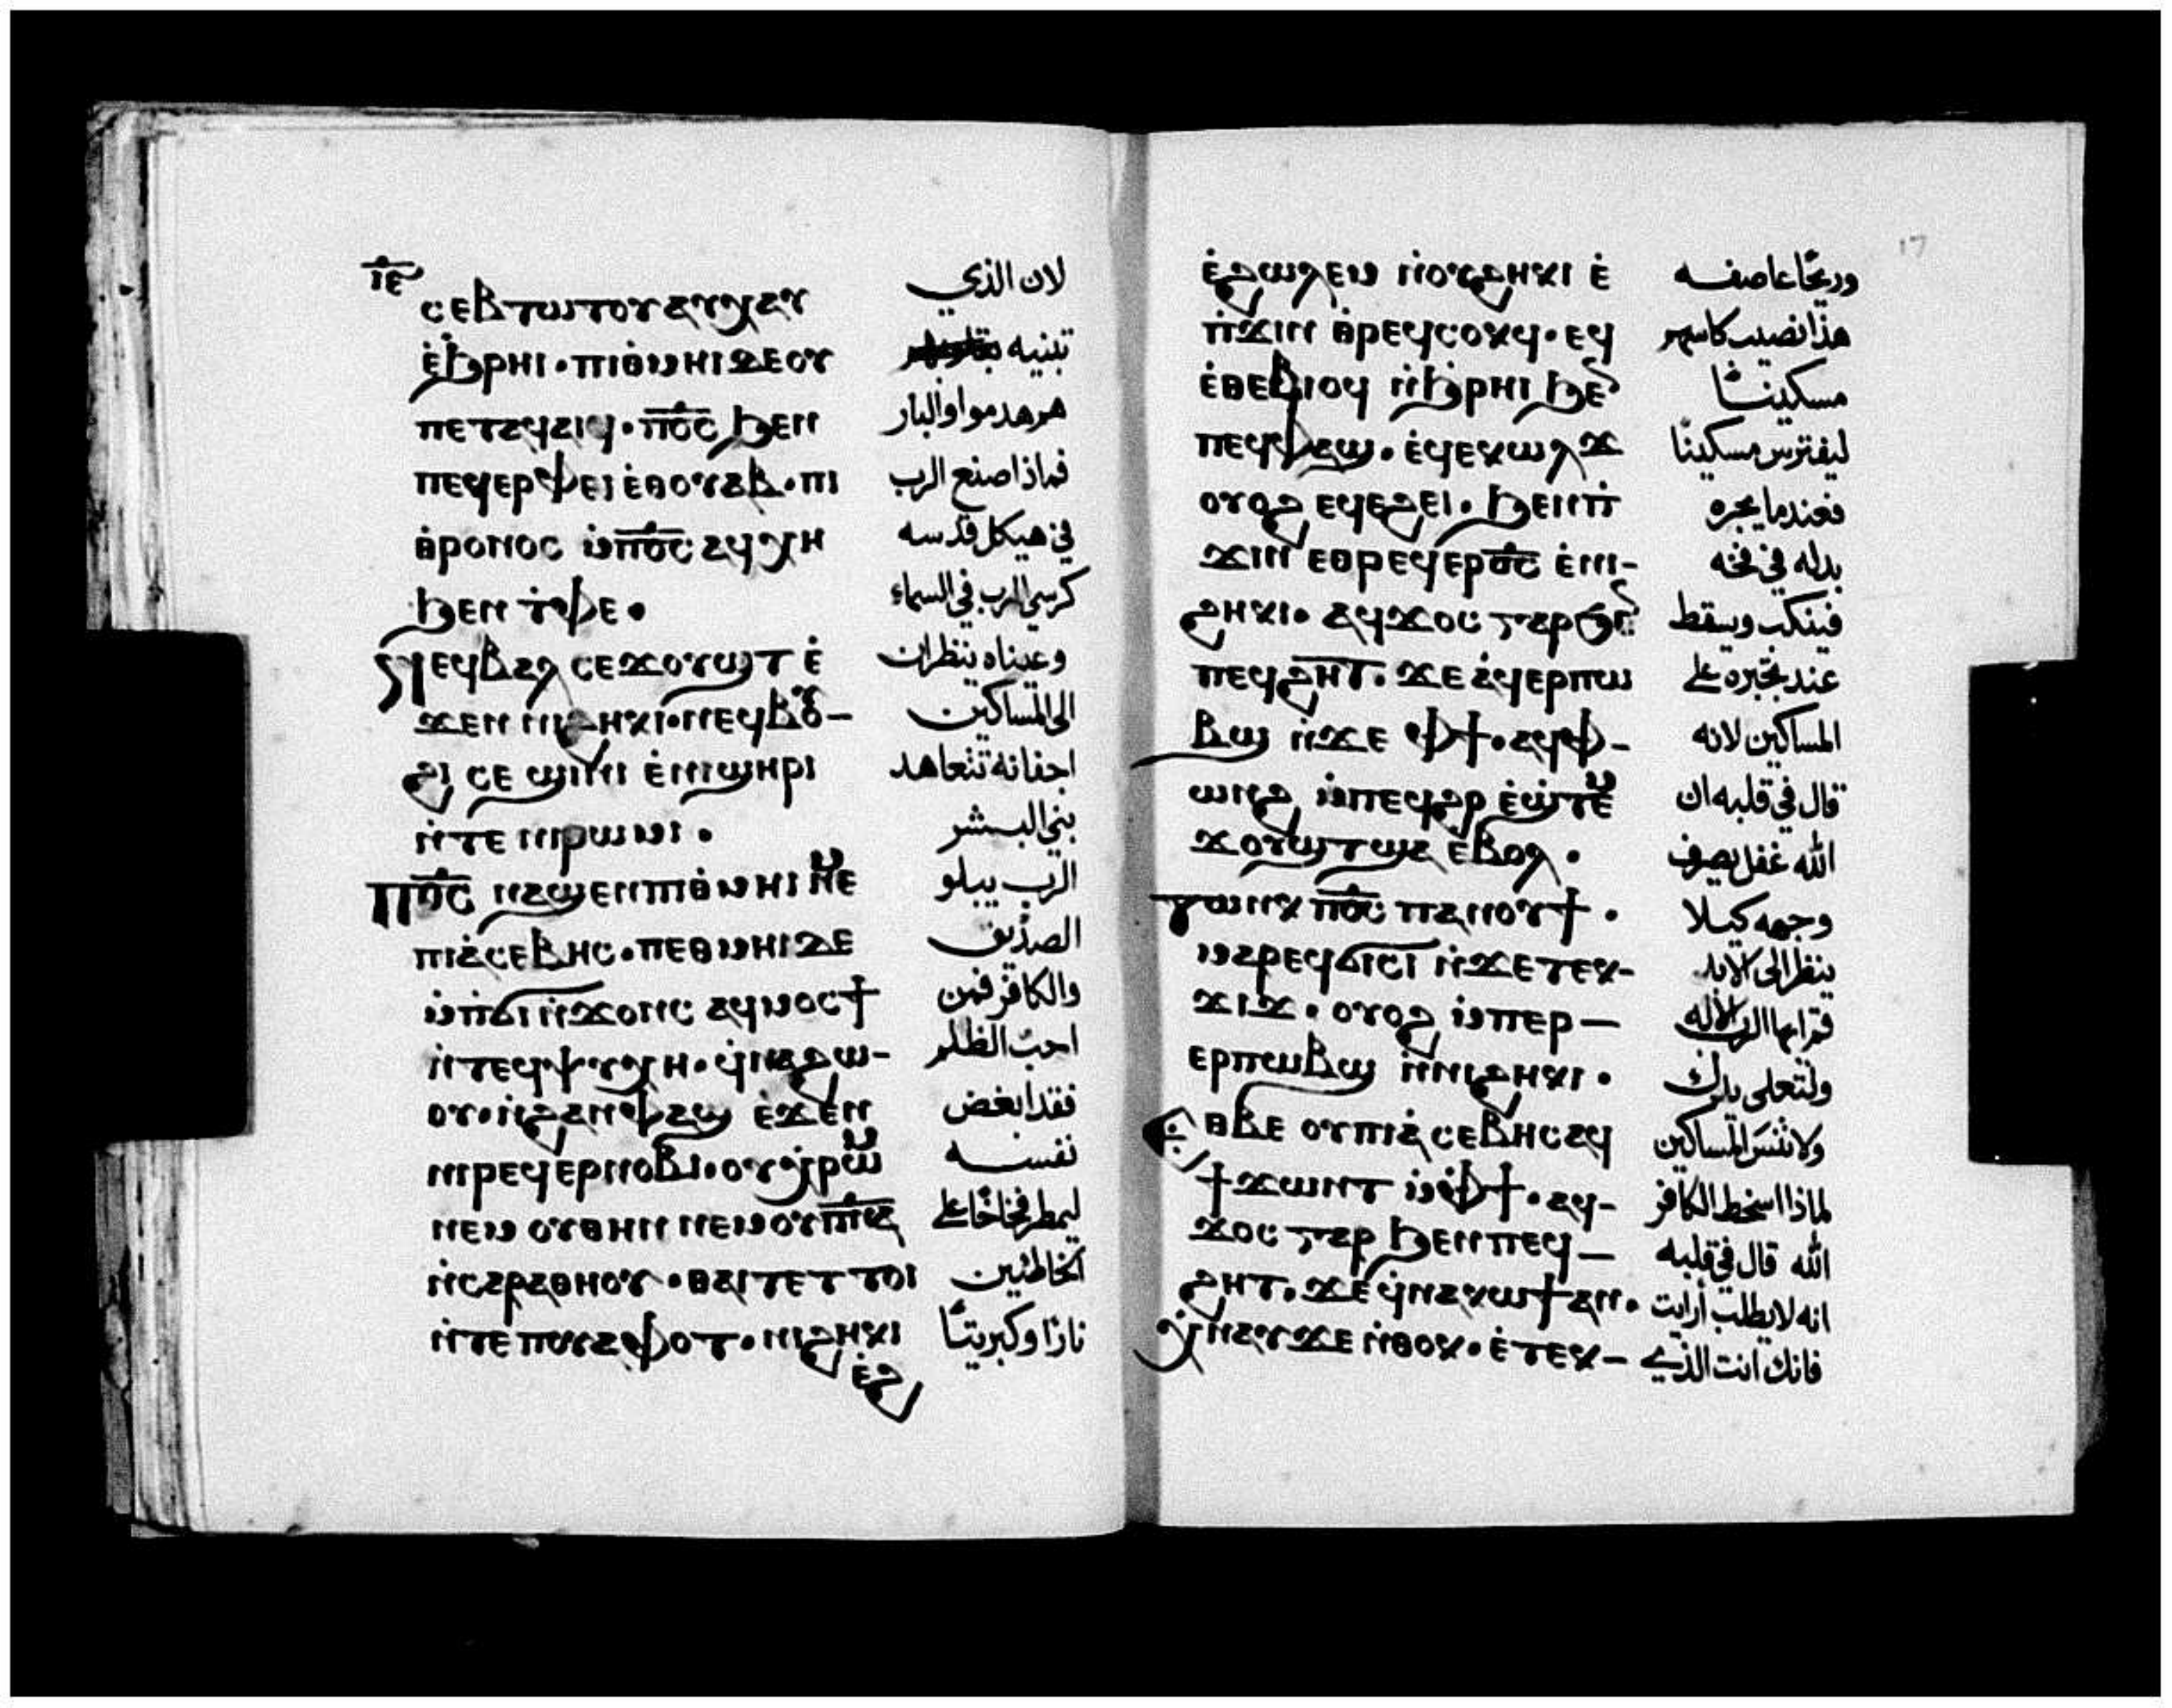 ⲓⲉ
ⲥⲉⲃⲧⲱⲧⲟⲩ ⲁⲩϣⲁⲩ
ⲉ̀ϧⲣⲏⲓ · ⲡⲓⲑⲙⲏⲓ ⲇⲉ ⲟⲩ
ⲡⲉⲧⲁϥⲁⲓϥ · ⲡ̅ⲟ̅ⲥ̅ ϧⲉⲛ
ⲡⲉϥⲉⲣⲫⲉⲓ ⲉ̀ⲑⲟⲩⲁⲃ · ⲡⲓ
ⲑⲣⲟⲛⲟⲥ ⲙ̀ⲡ̅ⲟ̅ⲥ̅ ⲁϥⲭⲏ
ϧⲉⲛ ⲧ̀ⲫⲉ ·
ⲛⲉϥⲃⲁⲗ ⲥⲉϫⲟⲩϣⲧ ⲉ̀
ϫⲉⲛ ⲛⲓϩⲏⲕⲓ · ⲛⲉϥⲃⲟⲩ-
ϩⲓ ⲥⲉ ϣⲓⲛⲓ ⲉ̀ⲛⲓϣⲏⲣⲓ
ⲛ̀ⲧⲉ ⲛⲓⲣⲱⲙⲓ ·
ⲡ̅ⲟ̅ⲥ̅ ⲛⲁϣⲉⲛ ⲡⲓⲑⲙⲏⲓ ⲛⲉⲙ
ⲡⲓⲁ̀ⲥⲉⲃⲏⲥ · ⲡⲉⲑⲙⲏⲓ ⲇⲉ
ⲙ̀ⲡϭⲓ ⲛ̀ϫⲟⲛⲥ ⲁϥⲙⲟⲥϯ
ⲛ̀ⲧⲉϥⲯⲩⲭⲏ · ϥ̀ⲛⲁϩⲱ-
ⲟⲩ · ⲛ̀ϩⲁⲛⲫⲁϣ ⲉ̀ϫⲉⲛ
ⲛⲓⲣⲉϥⲉⲣⲛⲟⲃⲓ · ⲟⲩⲭ̀ⲣⲱⲙ
ⲛⲉⲙ ⲟⲩⲑⲏⲛ ⲛⲉⲙ ⲟⲩⲡ̅ⲛ̅ⲁ̅
ⲛ̀ⲥⲁⲣⲁⲑⲏⲟⲩ · ⲑⲁⲓ ⲧⲉ ⲧ ⲧⲟⲓ
ⲛ̀ⲧⲉ ⲡⲟⲩⲁⲫⲟⲧ · ⲛⲓϩⲏⲕⲓ
ⲉ̀ϩ
لان الذي
تبنيه
هم هدموا والبار
فماذا صنع الرب
في هيكل قدسه
كرسي الرب في السماء
وعيناه ينظران
الى المساكين
اجفانه تتعاهد
بني البشر
الرب يبلو
الصديق
والكافر فمن
احب الظلم
فقد ابغض
نفسه
ليمطر فخاخًا على
الخاطئين
نارًا وكبريتًا
17
ⲉ̀ϩⲱⲗⲉⲙ ⲛ̀ⲟⲩϩⲏⲕⲓ ⲉ̀
ⲡ̀ϫⲓⲛ ⲑⲣⲉϥⲥⲟⲕϥ · ⲉϥ
ⲉ̀ⲑⲉⲃⲓⲟϥ ⲛ̀ϧⲣⲏⲓ ϧⲉⲛ
ⲡⲉϥⲫⲁϣ · ⲉ̀ϥⲉⲕⲱⲗϫ
ⲟⲩⲟϩ ⲉϥⲉϩⲉⲓ · ϧⲉⲛⲡ̀
ϫⲓⲛ ⲉⲑⲣⲉϥⲉⲣⲟ̅ⲥ̅ ⲉ̀ⲛⲓ-
ϩⲏⲕⲓ · ⲁϥϫⲟⲥ ⲅⲁⲣ ϧⲉⲛ
ⲡⲉϥϩⲏⲧ · ϫⲉ ⲁ̀ϥⲉⲣⲡⲱ
ⲃϣ ⲛ̀ϫⲉ ⲫϯ · ⲁϥⲫ-
ⲱⲛϩ ⲙ̀ⲡⲉϥϩⲣ ⲉ̀ϣ̀ⲧⲉⲙ
ϫⲟⲩϣⲧ ϣⲁ ⲉ̀ⲃⲟⲗ ·
ⲧⲱⲛⲕ ⲡ̅ⲟ̅ⲥ̅ ⲡⲁⲛⲟⲩϯ ·
ⲙⲁⲣⲉϥϭⲓⲥⲓ ⲛ̀ϫⲉ ⲧⲉⲕ-
ϫⲓϫ · ⲟⲩⲟϩ ⲙ̀ⲡⲉⲣ-
ⲉⲣⲡⲱⲃϣ ⲛ̀ⲛⲓϩⲏⲕⲓ ·
ⲑⲃⲉ ⲟⲩ ⲡⲓⲁ̀ⲥⲉⲃⲏⲥ ⲁϥ
ϯϫⲱⲛⲧ ⲙ̀ⲫϯ · ⲁϥ-
ϫⲟⲥ ⲅⲁⲣ ϧⲉⲛ ⲡⲉϥ-
ϩⲏⲧ · ϫⲉ ϥ̀ⲛⲁⲕⲱϯ ⲁⲛ ·
ⲭ̀ⲛⲁⲩ ϫⲉ ⲛ̀ⲑⲟⲕ · ⲉ̀ⲧⲉⲕ-
وريحًا عاصفه
هذا نصيب كاسهم
مسكينًا
ليفترس مسكينًا
فعندما يجره
يذله في فخه
فينكب ويسقط
عند تجبره على
المساكين لانه
قال في قلبه ان
الله غفل يصرف
وجهه كيلا
ينظر الى الابد
قم ايها الرب الاله
ولتتعلى يدك
ولا تنسَ المساكين
لماذا اسخط الكافر
الله قال في قلبه
انه لا يطلب أرايت
فانك انت الذي